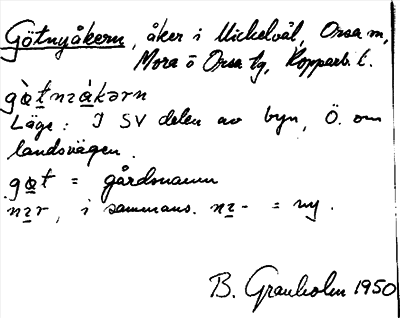 Götnyåkern, åker i Mickelvål, Orsa sn,
Mora o Orsa tg, Kopparb. l.
gö̀tnɪákərn
Läge: I SV delen av byn, Ö. om
landsvägen.
gøt = gårdsnamn
nɪr, i sammans. nɪ- = ny.
B. Granholm 1950